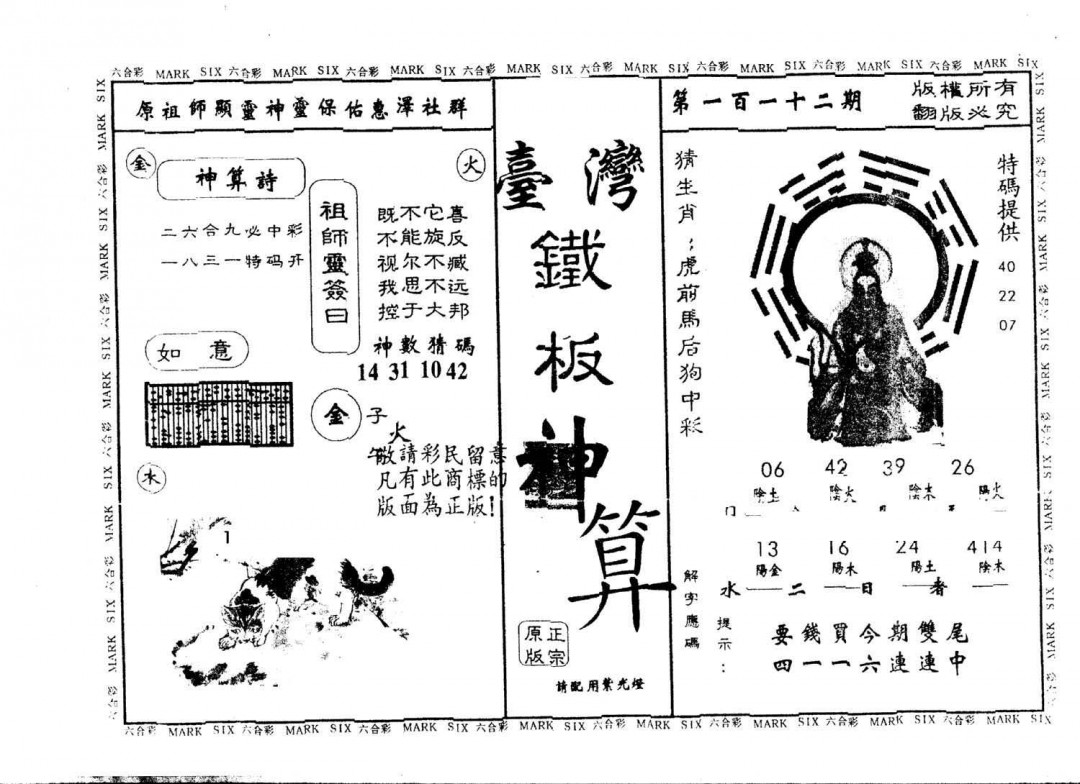 六合彩 MARK SIX 六合彩 MARK SIX 六合彩 MARK SIX 六合彩 MARK SIX 六合彩 MARK SIX 六合彩 MARK SIX 六合彩 MARK SIX 六合彩 MARK SIX
原祖師顯靈神靈保佑惠澤社群
金
火
神算詩
二六合九必中彩
一八三一特码开
祖師靈簽曰
既不它喜
不能旋反
视尔不臧
我思不远
控于大邦
神數猜碼
14 31 10 42
如意
金
子
火
水
敬請彩民留意
凡有此商標的
版面為正版!
1
臺灣
鐵
板
神
算
正宗
原版
請配用紫光燈
第一百一十二期
版權所有
翻版必究
猜生肖;虎前馬后狗中彩
特碼提供
40
22
07
06 42 39 26
陰土 陰火 陰木 陽火
13 16 24 414
陽金 陽木 陽土 陰木
解字應碼
水 二 日 者
提示:
要錢買今期雙尾
四一一六連連中
六合彩 MARK SIX 六合彩 MARK SIX 六合彩 MARK SIX 六合彩 MARK SIX 六合彩 MARK SIX 六合彩 MARK SIX 六合彩 MARK SIX 六合彩 MARK SIX